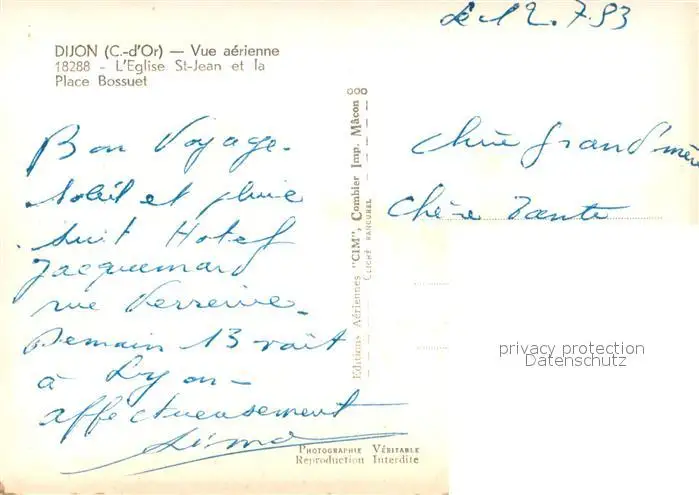 DIJON (C.-d'Or) — Vue aérienne
18288 - L'Eglise St-Jean et la
Place Bossuet
le 12.7.53
Chère Grand'mère
Chère Tante
Bon Voyage -
Soleil et pluie
suit Hotel
Jacquemard
rue Verrerie -
Demain 13 nuit
à Lyon -
affectueusement
Editions Aériennes "CIM", Combier Imp. Mâcon
CLICHÉ RANCUREL
PHOTOGRAPHIE VÉRITABLE
Reproduction Interdite
privacy protection
Datenschutz